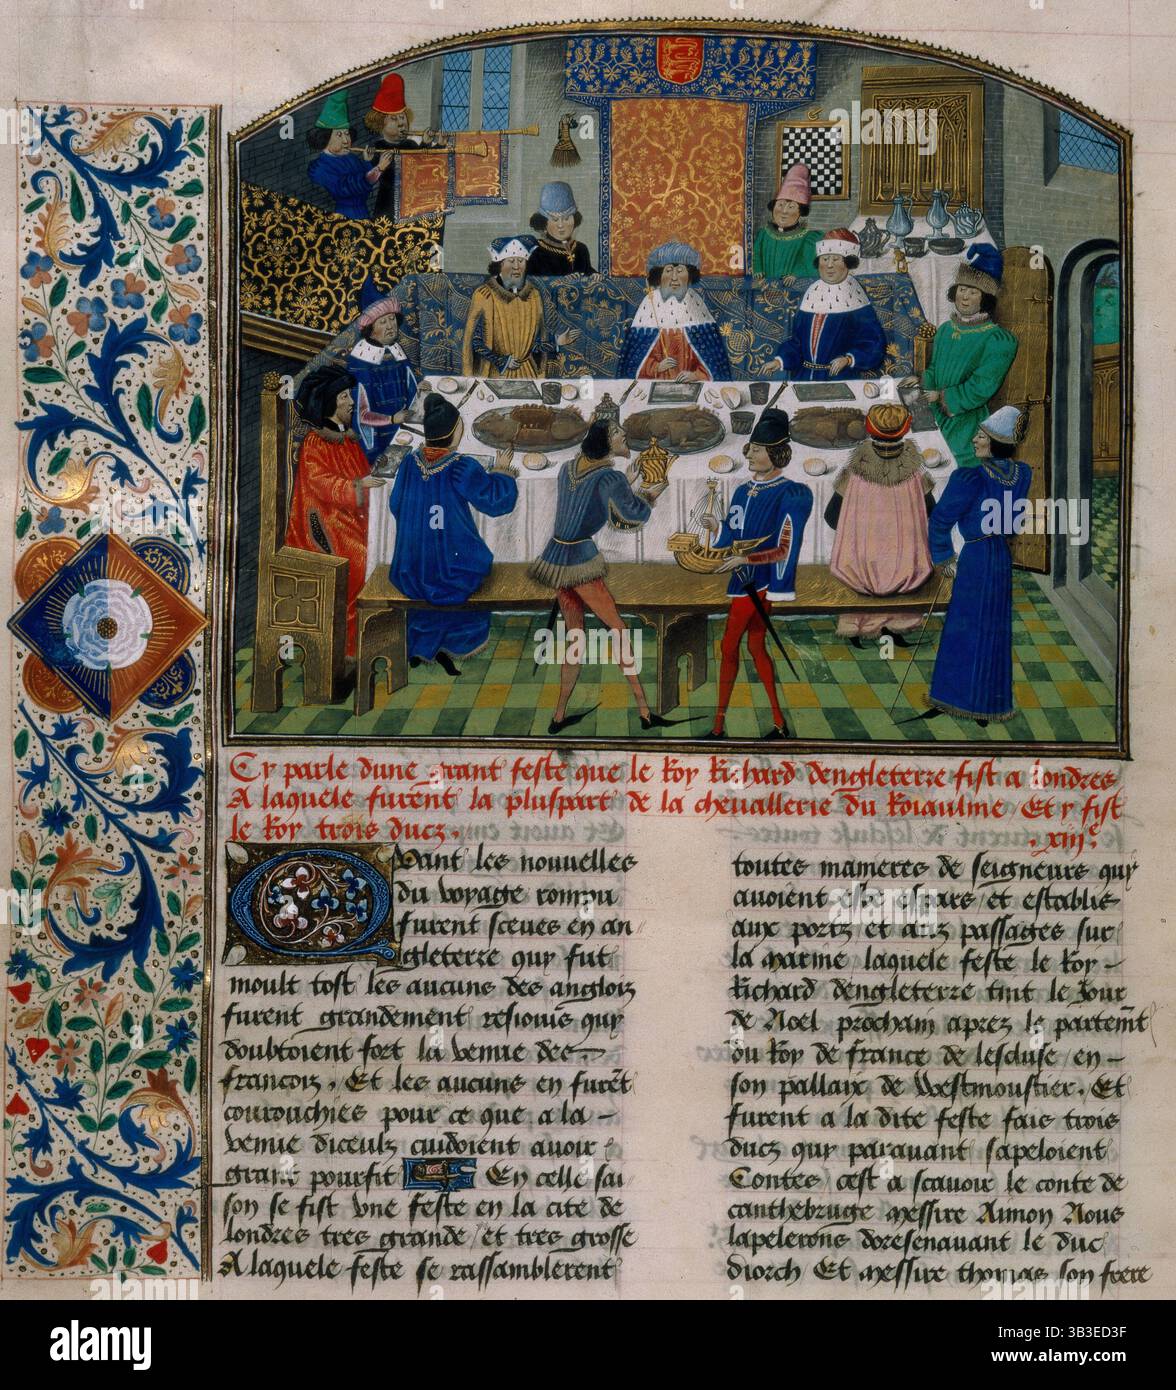 Cy parle dune grant feste que le Roy Richard dengleterre fist a londres
A laquele furent la pluspart de la chevallerie du Roiaulme Et y fist
le Roy trois ducz. .xiiie.
Quant les nouuelles
du voyage rompu
furent sceues en an
gleterre quy fut
moult tost les aucuns des anglois
furent grandement resiouis quy
doubtoient fort la venue des
francois. Et les aucuns en furent
courouchies pour ce que a la
venue diceulz cuidoient auoir
grant pourfit En celle sai
son se fist vne feste en la cite de
londres tres grande et tres grosse
A laquele feste se rassamblerent
toutes manieres de seigneurs quy
auoient este espars et establis
aux portz et aux passages sur
la marine laquele feste le Roy
Richard dengleterre tint le Jour
de Noel prochain apres le partemt
du Roy de france de lescluse en
son pallaix de westmoustier. Et
furent a la dite feste fais trois
ducz quy parauant sapeloient
Contes cest a scauoir le conte de
canthebruge messire Aimon Nous
lapelerons doresenauant le duc
diorch Et messire thomas son frere
alamy
Image ID: B3ED3F
www.alamy.com